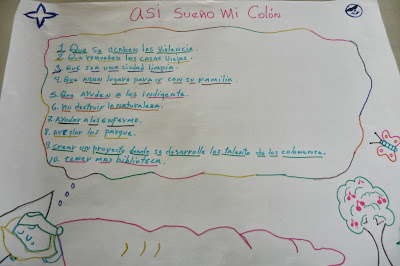 Asi Sueño Mi Colón
1. Que se acaben las violencia.
2. Que renueben las casas viejas.
3. Que sea una ciudad limpia.
4. Que agan lugare para ir con su familia
5. Que ayuden a los indigente.
6. no destruir la naturaleza.
7. Ayudar a los enfermo.
8. Areglar los parque.
9. crear un proyecto donde se desarrolle los talento de los colonense.
10. tener mas biblioteca.